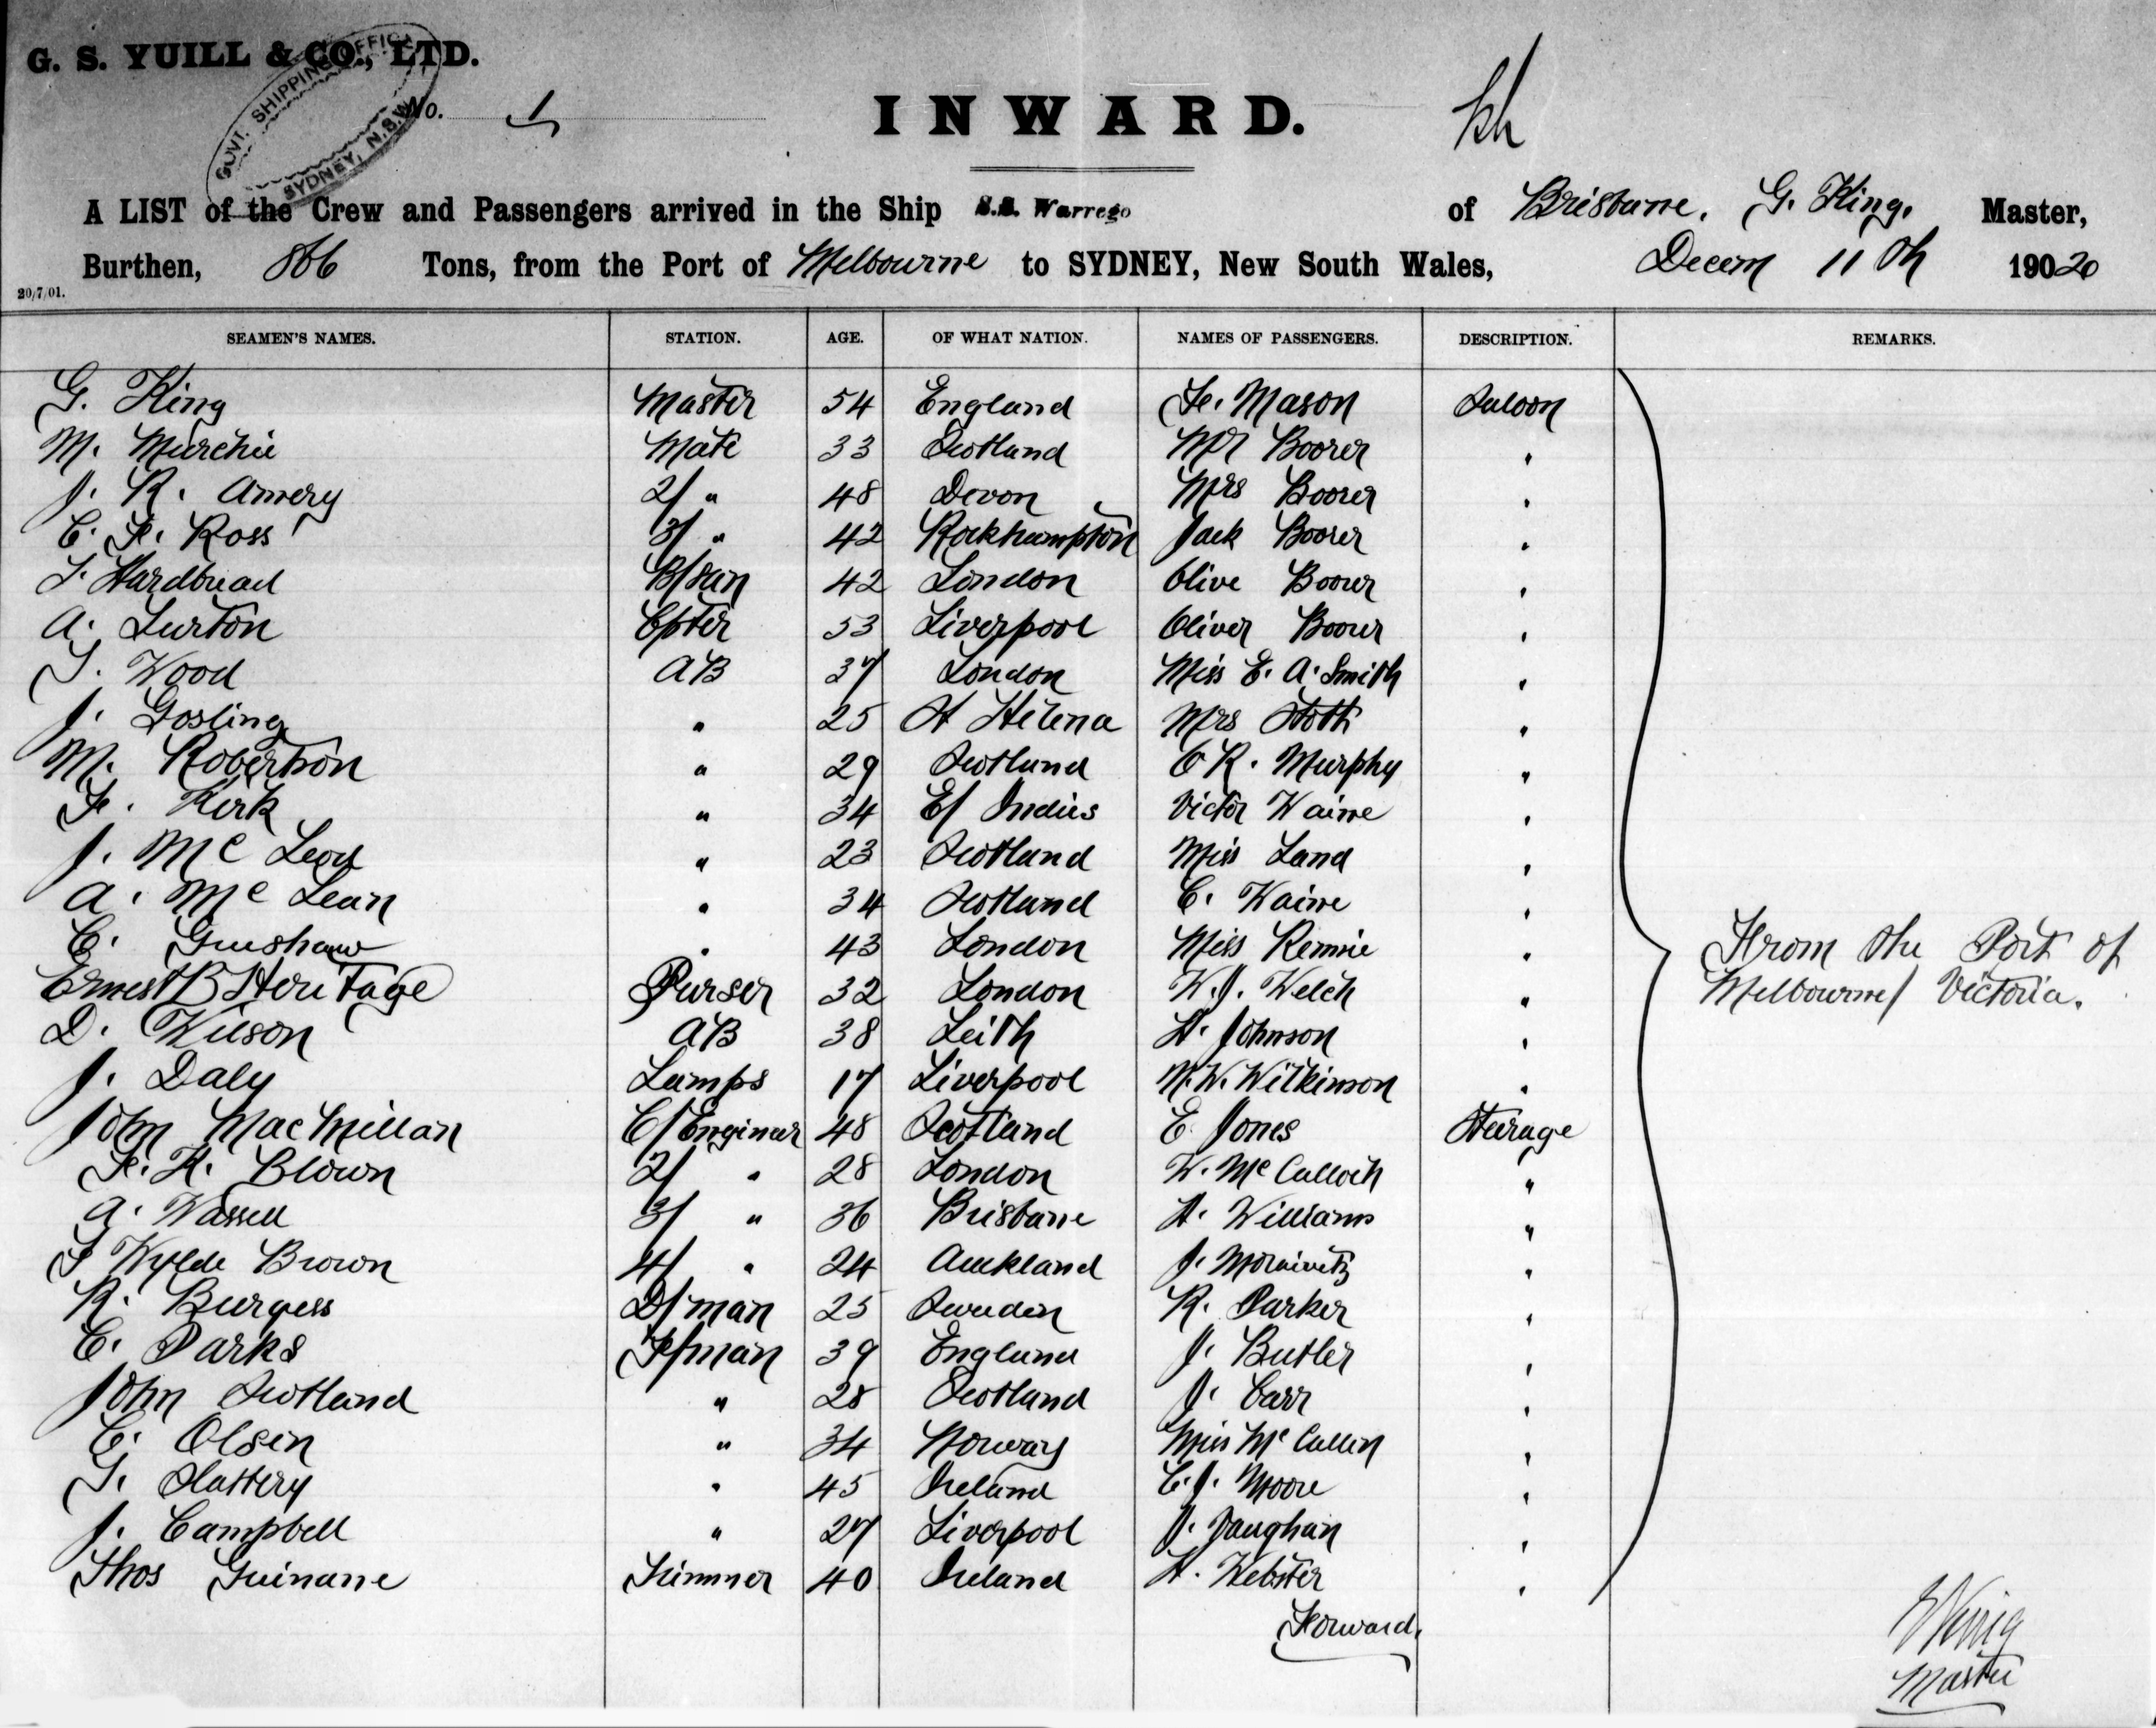 G. S. YUILL & CO., LTD.
GOVT. SHIPPING OFFICE
SYDNEY, N.S.W.
No. 1
INWARD.
A LIST of the Crew and Passengers arrived in the Ship S.S. Warrego of Brisbane, G. King, Master,
Burthen, 866 Tons, from the Port of Melbourne to SYDNEY, New South Wales, Decem 11th 19020
20/7/01.
SEAMEN'S NAMES. STATION. AGE. OF WHAT NATION. NAMES OF PASSENGERS. DESCRIPTION. REMARKS.
G. King Master 54 England F. Mason Saloon
M. Murchie Mate 33 Scotland Mr Boorer "
J. R. Amery 2/ " 48 Devon Mrs Boorer "
C. F. Ross 3/ " 42 Rockhampton Jack Boorer "
T. Hardbread B/sun 42 London Olive Boorer "
A. Lurton Cpter 53 Liverpool Oliver Boorer "
T. Wood AB 37 London Miss E. A. Smith "
J. Gosling " 25 St Helena Mrs Stott "
M. Robertson " 29 Scotland C R. Murphy "
F. Kirk " 34 E/ Indies Victor Waine "
J. Mc Leod " 23 Scotland Miss Land "
A. Mc Lean " 34 Scotland C. Waine "
C. " 43 London Miss Rennie "
Ernest B Heritage Purser 32 London W. J. Welch "
D. Wilson AB 38 Leith H. Johnson "
J. Daly Lamps 17 Liverpool N. W. Wilkinson "
John MacMillan C/Engineer 48 Scotland E Jones Steerage
F. H. Blown 2/ " 28 London W. Mc Culloch "
A. Wassell 3/ " 36 Brisbane H. Williams "
Wylde Brown 4/ " 24 Auckland J. "
R. Burgess D/man 25 Sweden R. Parker "
C. Parks F/man 39 England J. Butler "
John Scotland " 28 Scotland J. Carr "
C. Olsen " 34 Norway Miss Mc Cullen "
T. Slattery " 45 Ireland C. J. Moore "
J. Campbell " 27 Liverpool J. Vaughan "
Thos Guinane Trimmer 40 Ireland H. Webster "
Forward.
From the Port of
Melbourne/ Victoria.
Master